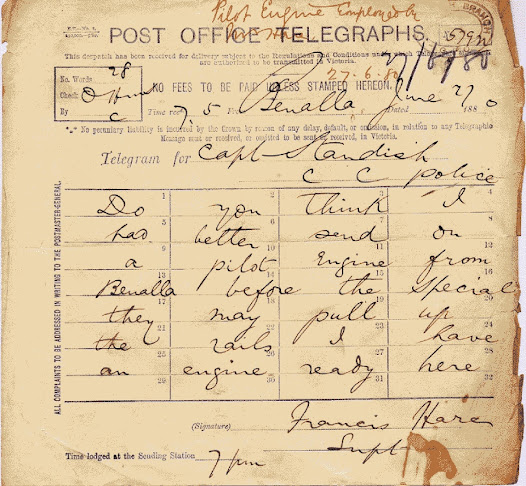 Pilot Engine Employed
POST OFFICE TELEGRAPHS.
This despatch has been received for delivery subject to the Regulations and Conditions under which Telegrams
are authorised to be transmitted in Victoria.
27/6/80
No. Words 28
NO FEES TO BE PAID UNLESS STAMPED HEREON.
27.6.80
Check
By C
Time rec 7.5 Benalla Dated June 27 1880
*.* No pecuniary liability is incurred by the Crown by reason of any delay, default, or omission, in relation to any Telegraphic
Message sent or received, or omitted to be sent or received, in Victoria.
Telegram for Capt Standish
C C Police
ALL COMPLAINTS TO BE ADDRESSED IN WRITING TO THE POSTMASTER-GENERAL.
1 2 3 4
Do you think I
5 6 7 8
had better send on
9 10 11 12
a pilot Engine from
13 14 15 16
Benalla before the Special
17 18 19 20
they may pull up
21 22 23 24
the rails I have
25 26 27 28
an engine ready here
29 30 31 32
(Signature) Francis Hare
Supt
Time lodged at the Sending Station 7 pm